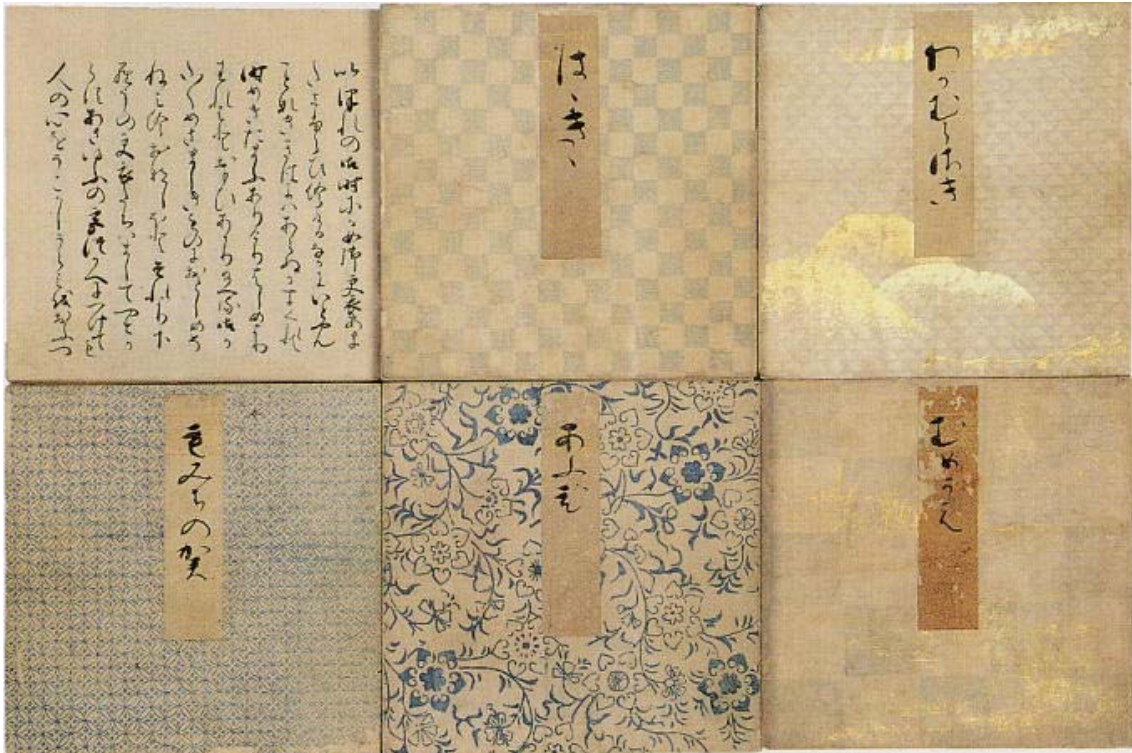 いつれの御時にか女御更衣あま
たさふらひ給けるなかにいとやん
ことなきゝはにはあらぬかすくれて
時めきたまふありけりはしめよりわ
れはとおもひあかり給へる御か
た〱めさましきものにおとしめそ
ねみ給おなしほとそれより下
らうの更衣たちはましてやすか
らすあさゆふの宮つかへにつけても
人の心をうこかしうらみをおふつ
はゝきゝ
わかむらさき
もみちの賀
あふひ
むめかえ